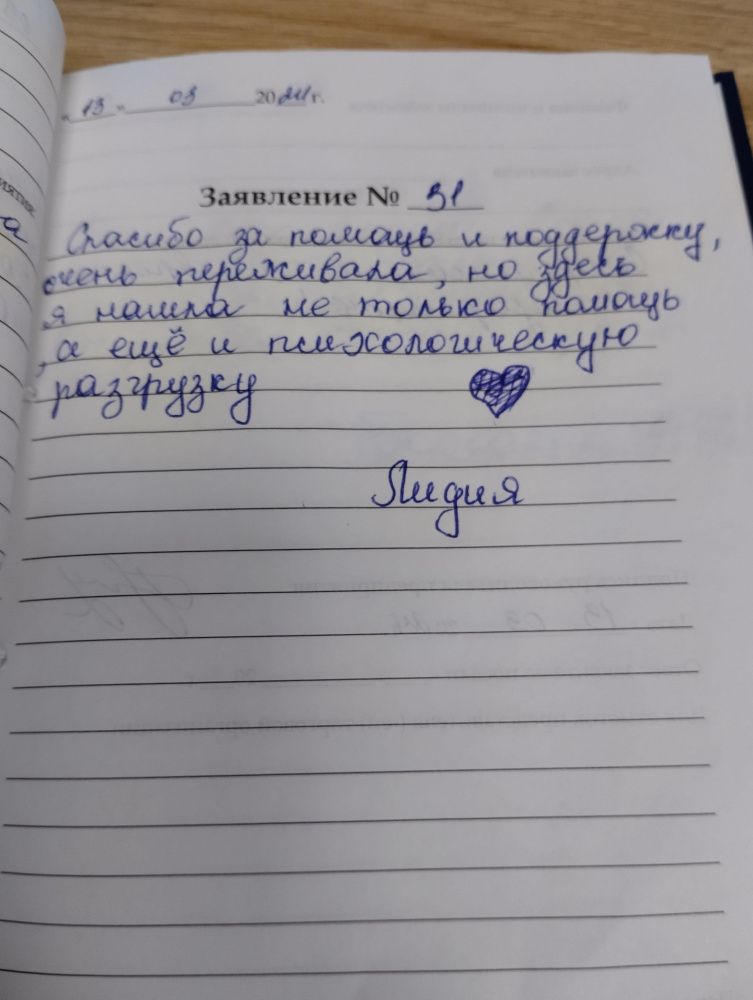 " 13 " 03 2024 г.
Заявление № 31
Спасибо за помощь и поддержку,
очень переживала, но здесь
я нашла не только помощь
, а ещё и психологическую
разгрузку
Лидия